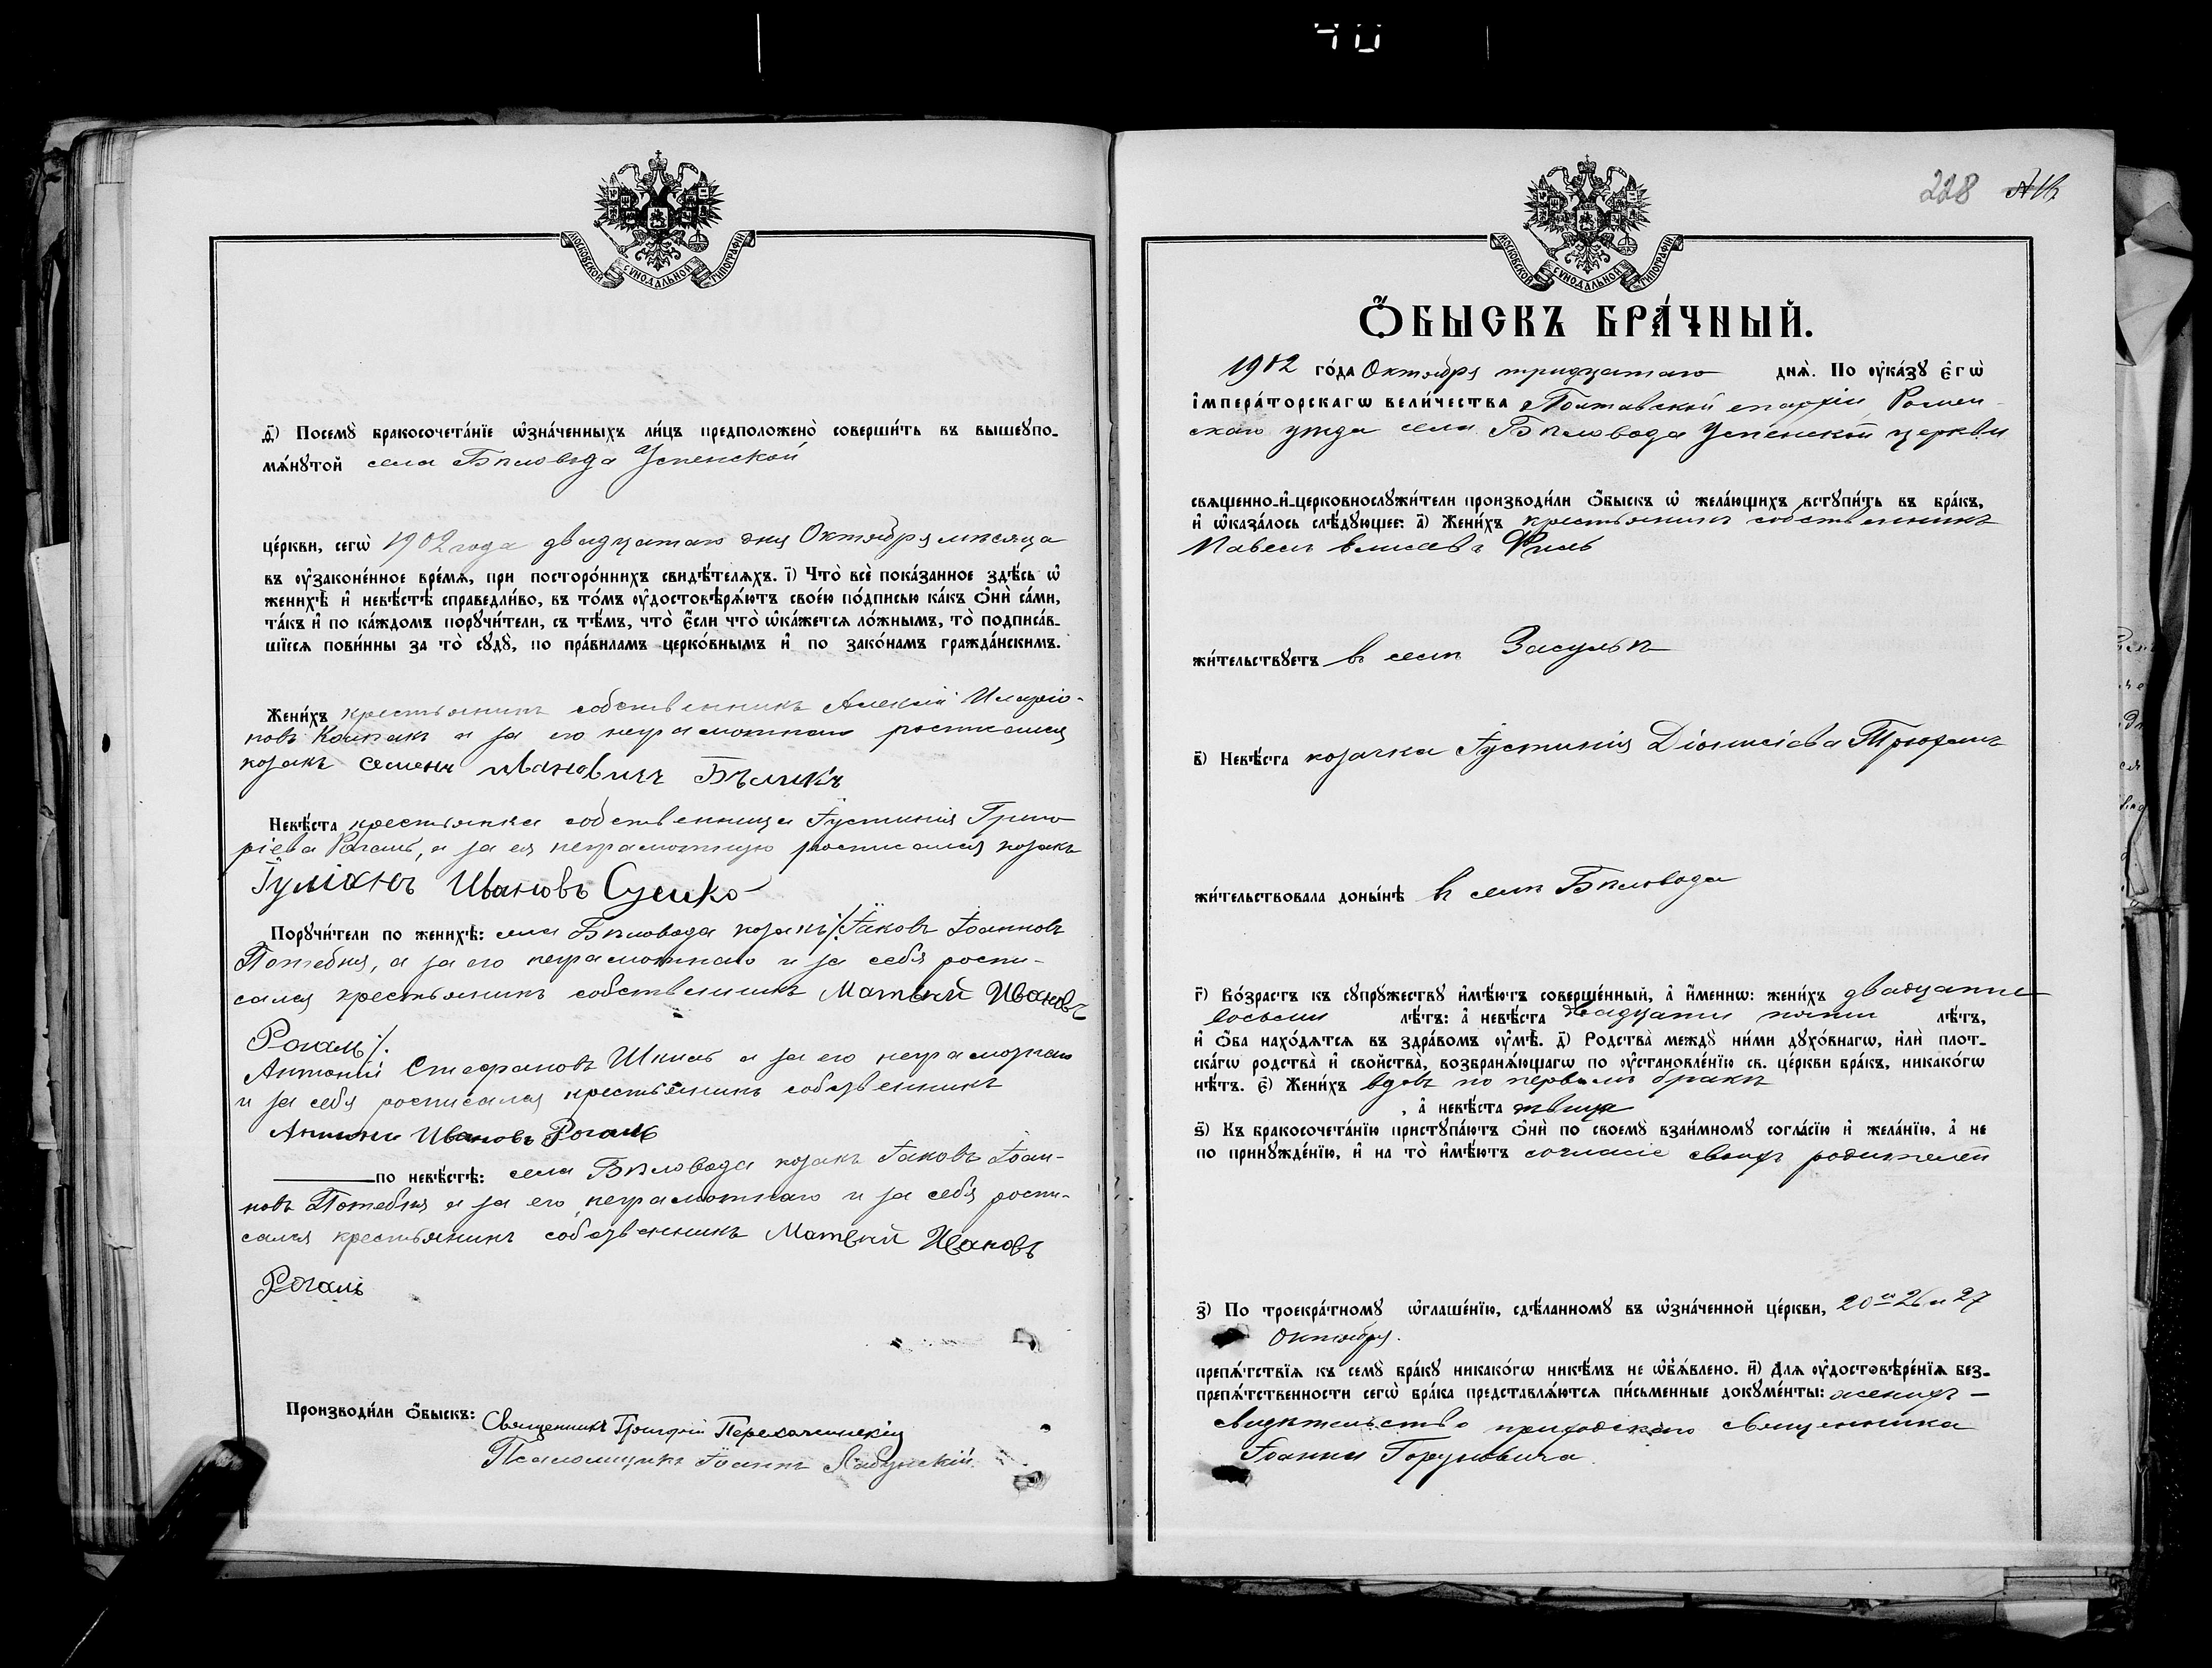 40
МОСКОВСКОЙ СѴНОДАЛЬНОЙ ТИПОГРАФІИ
д҃) Посемꙋ̀ бракосочета́нїе ѡ҆зна́ченныхъ ли́цъ предположено̀ соверши́ть въ вышеꙋпо-
мѧ́нꙋтой села Бѣловода Успенской
це́ркви, сегѡ̀ 1902 года двадцатаго дня Октября мѣсяца
въ ᲂу҆законе́нное вре́мѧ, при посторо́ннихъ свидѣ́телѧхъ. і҃) Что̀ всѐ пока́занное здѣ́сь ѡ҆
женихѣ̀ и҆ невѣ́стѣ справедли́во, въ то́мъ ᲂу҆достовѣрѧ́ютъ свое́ю по́дписью ка́къ ѻ҆нѝ са́ми,
та́къ и҆ по ка́ждомъ порꙋчи́тели, съ тѣ́мъ, что̀ є҆́сли что̀ ѡ҆ка́жетсѧ ло́жнымъ, то̀ подписа́в-
шїесѧ пови́нны за то̀ сꙋдꙋ̀, по пра́виламъ церко́внымъ и҆ по зако́намъ гражда́нскимъ.
Жени́хъ крестьянинъ собственникъ Алексій Иларіо-
новъ Колпакъ а за его неграмотнаго росписался
козакъ Семенъ Ивановичъ Бѣликъ
Невѣ́ста крестьянка собственница Іустинія Григо
ріева Рогаль, а за ея неграмотную росписался козакъ
Іуліанъ Ивановъ Сушко
Порꙋчи́тели по женихѣ̀: села Бѣловода козакъ /. Іаковъ Іоанновъ
Потебня, а за его неграмотнаго и за себя роспи-
сался крестьянинъ собственникъ Матвѣй Ивановъ
Рогаль /.
Антоній Стефановъ а за его неграмотнаго
и за себя росписался крестьянинъ собственникъ
Антоній Ивановъ Рогаль
по невѣ́стѣ: села Бѣловода козакъ Іаковъ Іоан-
новъ Потебня а за его неграмотнаго и за себя роспи-
сался крестьянинъ собственникъ Матвѣй Ивановъ
Рогаль
Производи́ли ѻ҆́быскъ: Священникъ Григорій
Псаломщикъ Іоаннъ Лабунскій.
228
МОСКОВСКОЙ СѴНОДАЛЬНОЙ ТИПОГРАФІИ
Ѻ҆́БЫСКЪ БРА́ЧНЫЙ.
1902 го́да Октября тридцатаго днѧ̀. По ᲂу҆ка́зꙋ є҆гѡ̀
і҆мпера́торскагѡ вели́чества Полтавской епархіи, Ромен-
скаго уѣзда села Бѣловода Успенской церкви
свѧщенно-и҆-церковнослꙋжи́тели производи́ли ѻ҆́быскъ ѡ҆ жела́ющихъ встꙋпи́ть въ бра́къ,
и҆ ѡ҆каза́лось слѣ́дꙋющее: а҃) Жени́хъ крестьянинъ собственникъ
Павелъ Елисеевъ
жи́тельствꙋетъ въ селѣ Засульѣ
в҃) Невѣ́ста козачка Іустинія Діонисіева
жи́тельствовала доны́нѣ въ селѣ Бѣловода
г҃) Во́зрастъ къ сꙋпрꙋ́жествꙋ и҆мѣ́ютъ соверше́нный, а҆ и҆́меннѡ: жени́хъ двадцати
восьми лѣ́тъ: а҆ невѣ́ста двадцати пяти лѣ́тъ,
и҆ ѻ҆́ба нахо́дѧтсѧ въ здра́вомъ ᲂу҆мѣ̀. д҃) Родства̀ междꙋ̀ ни́ми дꙋхо́внагѡ, и҆лѝ плот-
ска́гѡ родства̀ и҆ сво́йства, возбранѧ́ющагѡ по ᲂу҆становле́нїю св. це́ркви бра́къ, никако́гѡ
нѣ́тъ. є҃) Жени́хъ вдовъ по первомъ бракѣ
, а҆ невѣ́ста дѣвица
ѕ҃) Къ бракосочета́нїю пристꙋпа́ютъ ѻ҆нѝ по своемꙋ̀ взаи́мномꙋ согла́сїю и҆ жела́нїю, а҆ не
по принꙋжде́нїю, и҆ на то̀ и҆мѣ́ютъ согласіе своихъ родителей
з҃) По троекра́тномꙋ ѡ҆глаше́нїю, сдѣ́ланномꙋ въ ѡ҆зна́ченной це́ркви, 20го 26 и 27
Октября.
препѧ́тствїѧ къ семꙋ̀ бра́кꙋ никако́гѡ никѣ́мъ не ѡ҆б̾ѧ́влено. и҃) Длѧ ᲂу҆достовѣре́нїѧ без-
препѧ́тственности сегѡ̀ бра́ка представлѧ́ютсѧ пи́сьменные докꙋме́нты: жениху -
свидѣтельство приходскаго священника
Іоанна